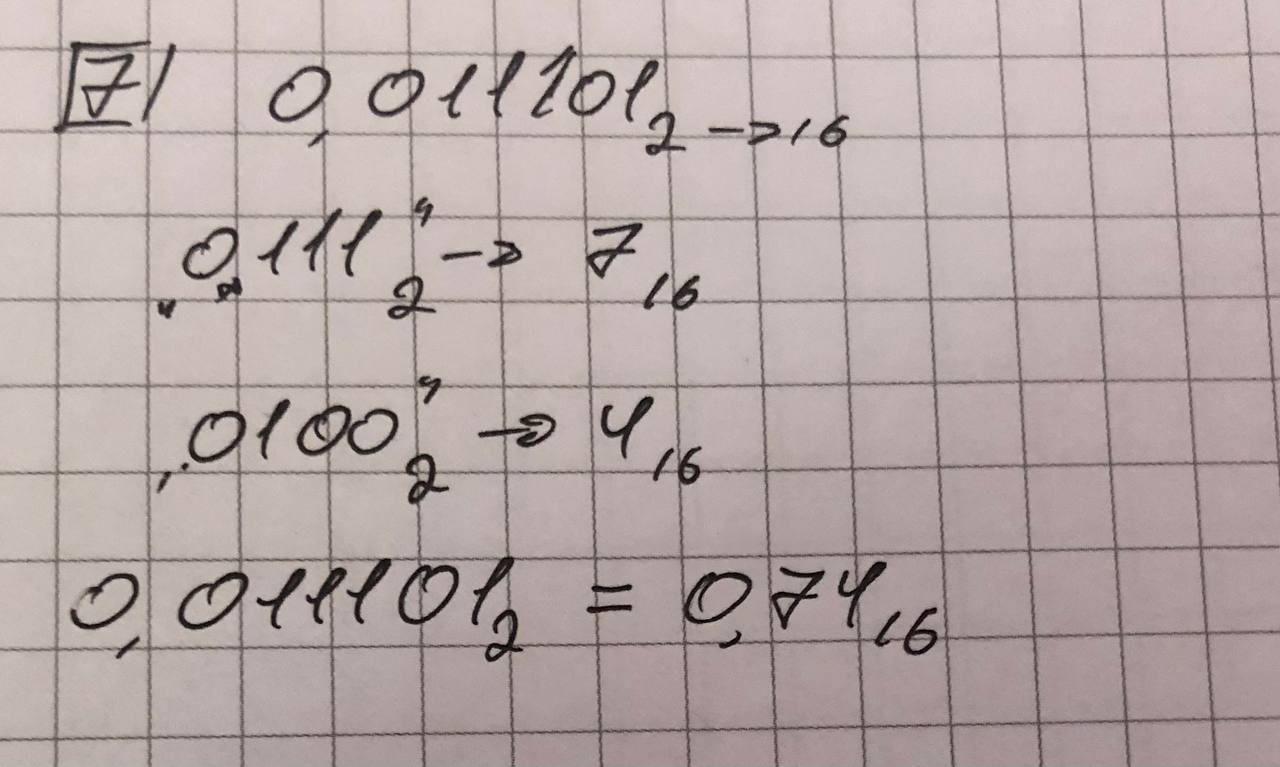 7) 0,011101₂ → 16
„0111“₂ → 7₁₆
„0100“₂ → 4₁₆
0,011101₂ = 0,74₁₆